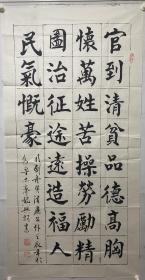 官到清貧品德高胸
懷萬姓苦操勞勵精
圖治征途遠造福人
民氣慨豪